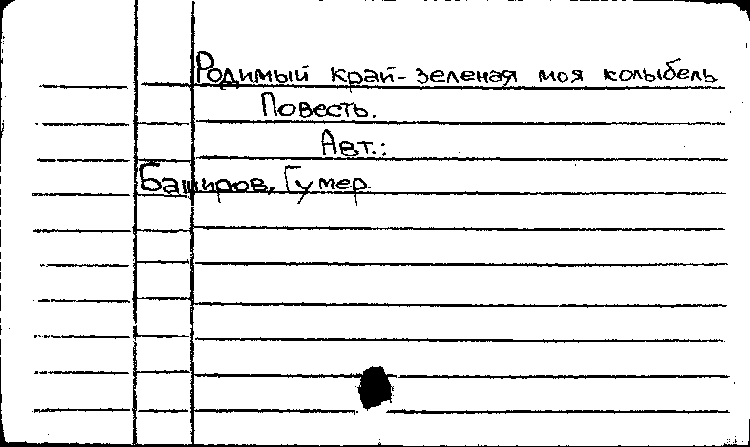 Родимый край-зеленая моя колыбель
Повесть.
Авт.:
Баширов, Гумер